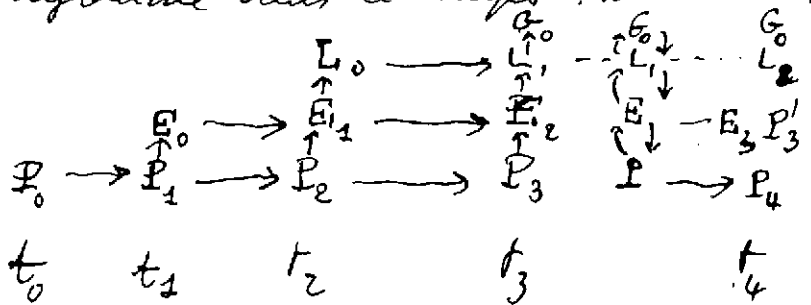 dans le temps
G₀ G₀ G₀
L₀ → L₁ - - - L₁ - - - L₂
E₀ → E₁ → E₂ E — E₃ P₃'
P₀ → P₁ → P₂ → P₃ P → P₄
t₀ t₁ t₂ t₃ t₄